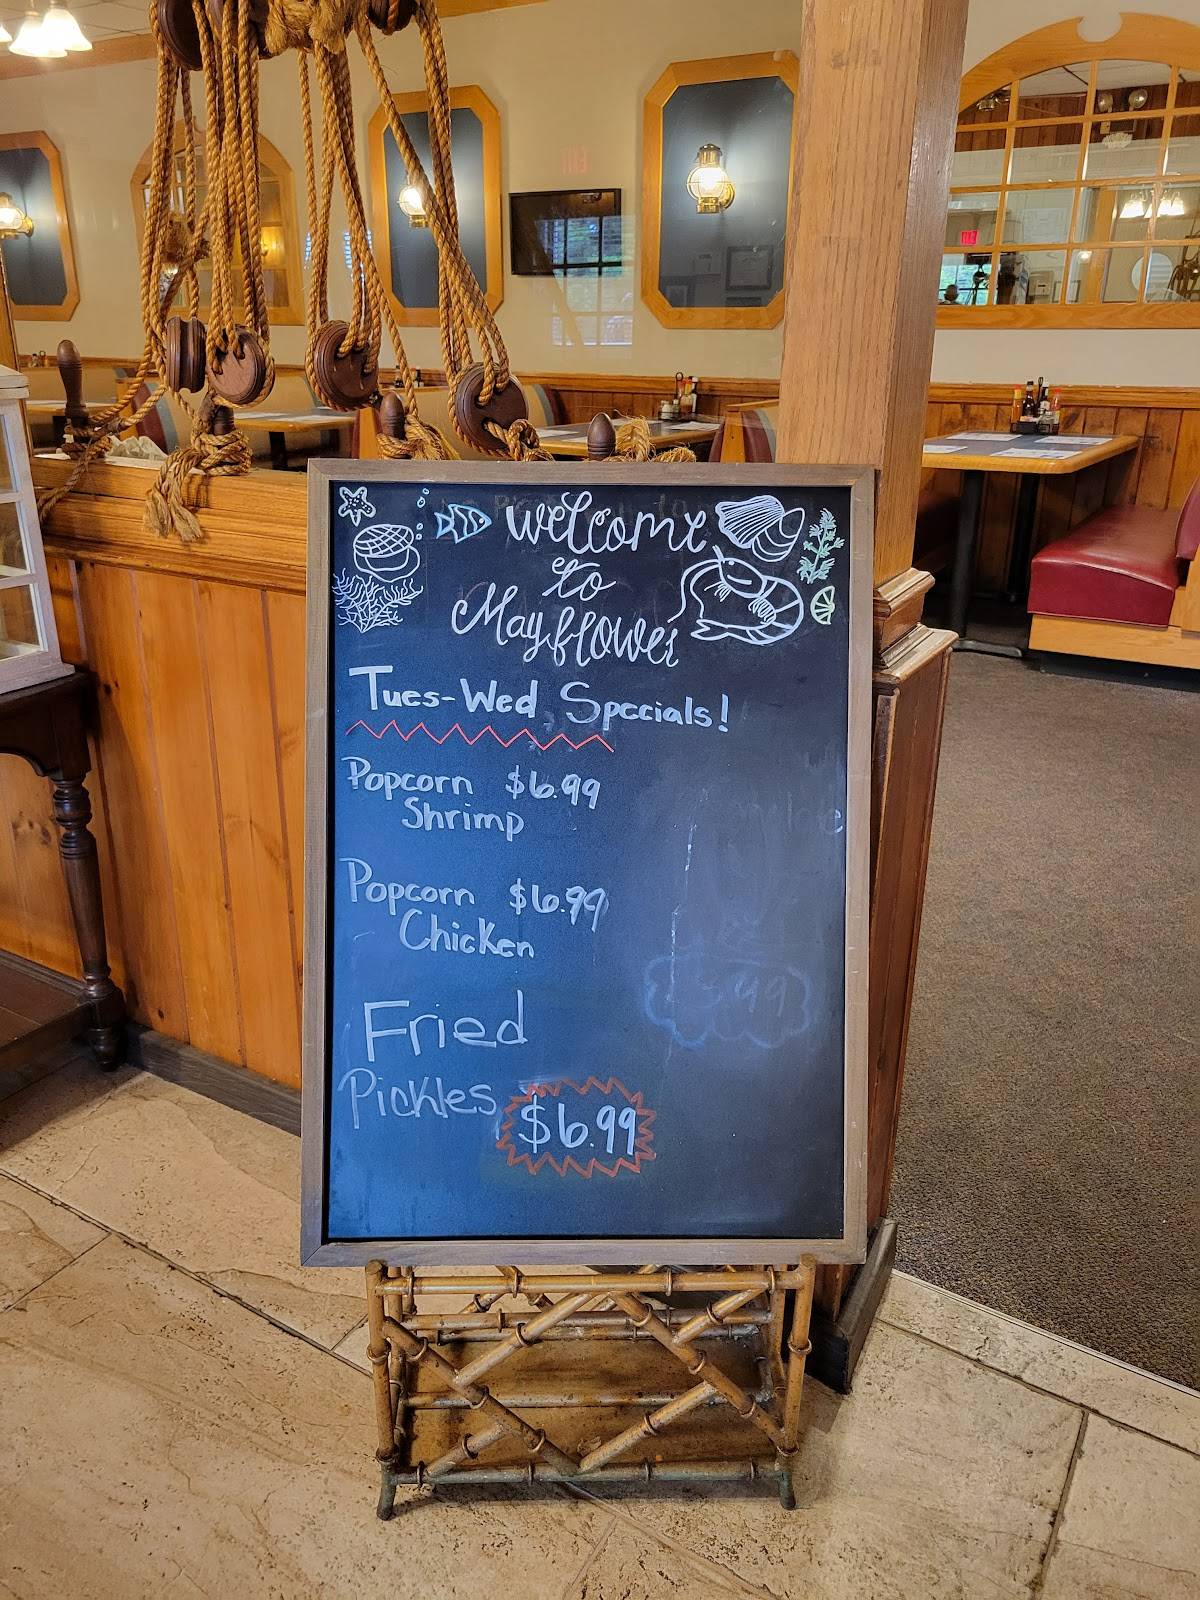 Welcome
to
Mayflower
Tues-Wed Specials!
Popcorn $6.99
Shrimp
Popcorn $6.99
Chicken
Fried
Pickles $6.99